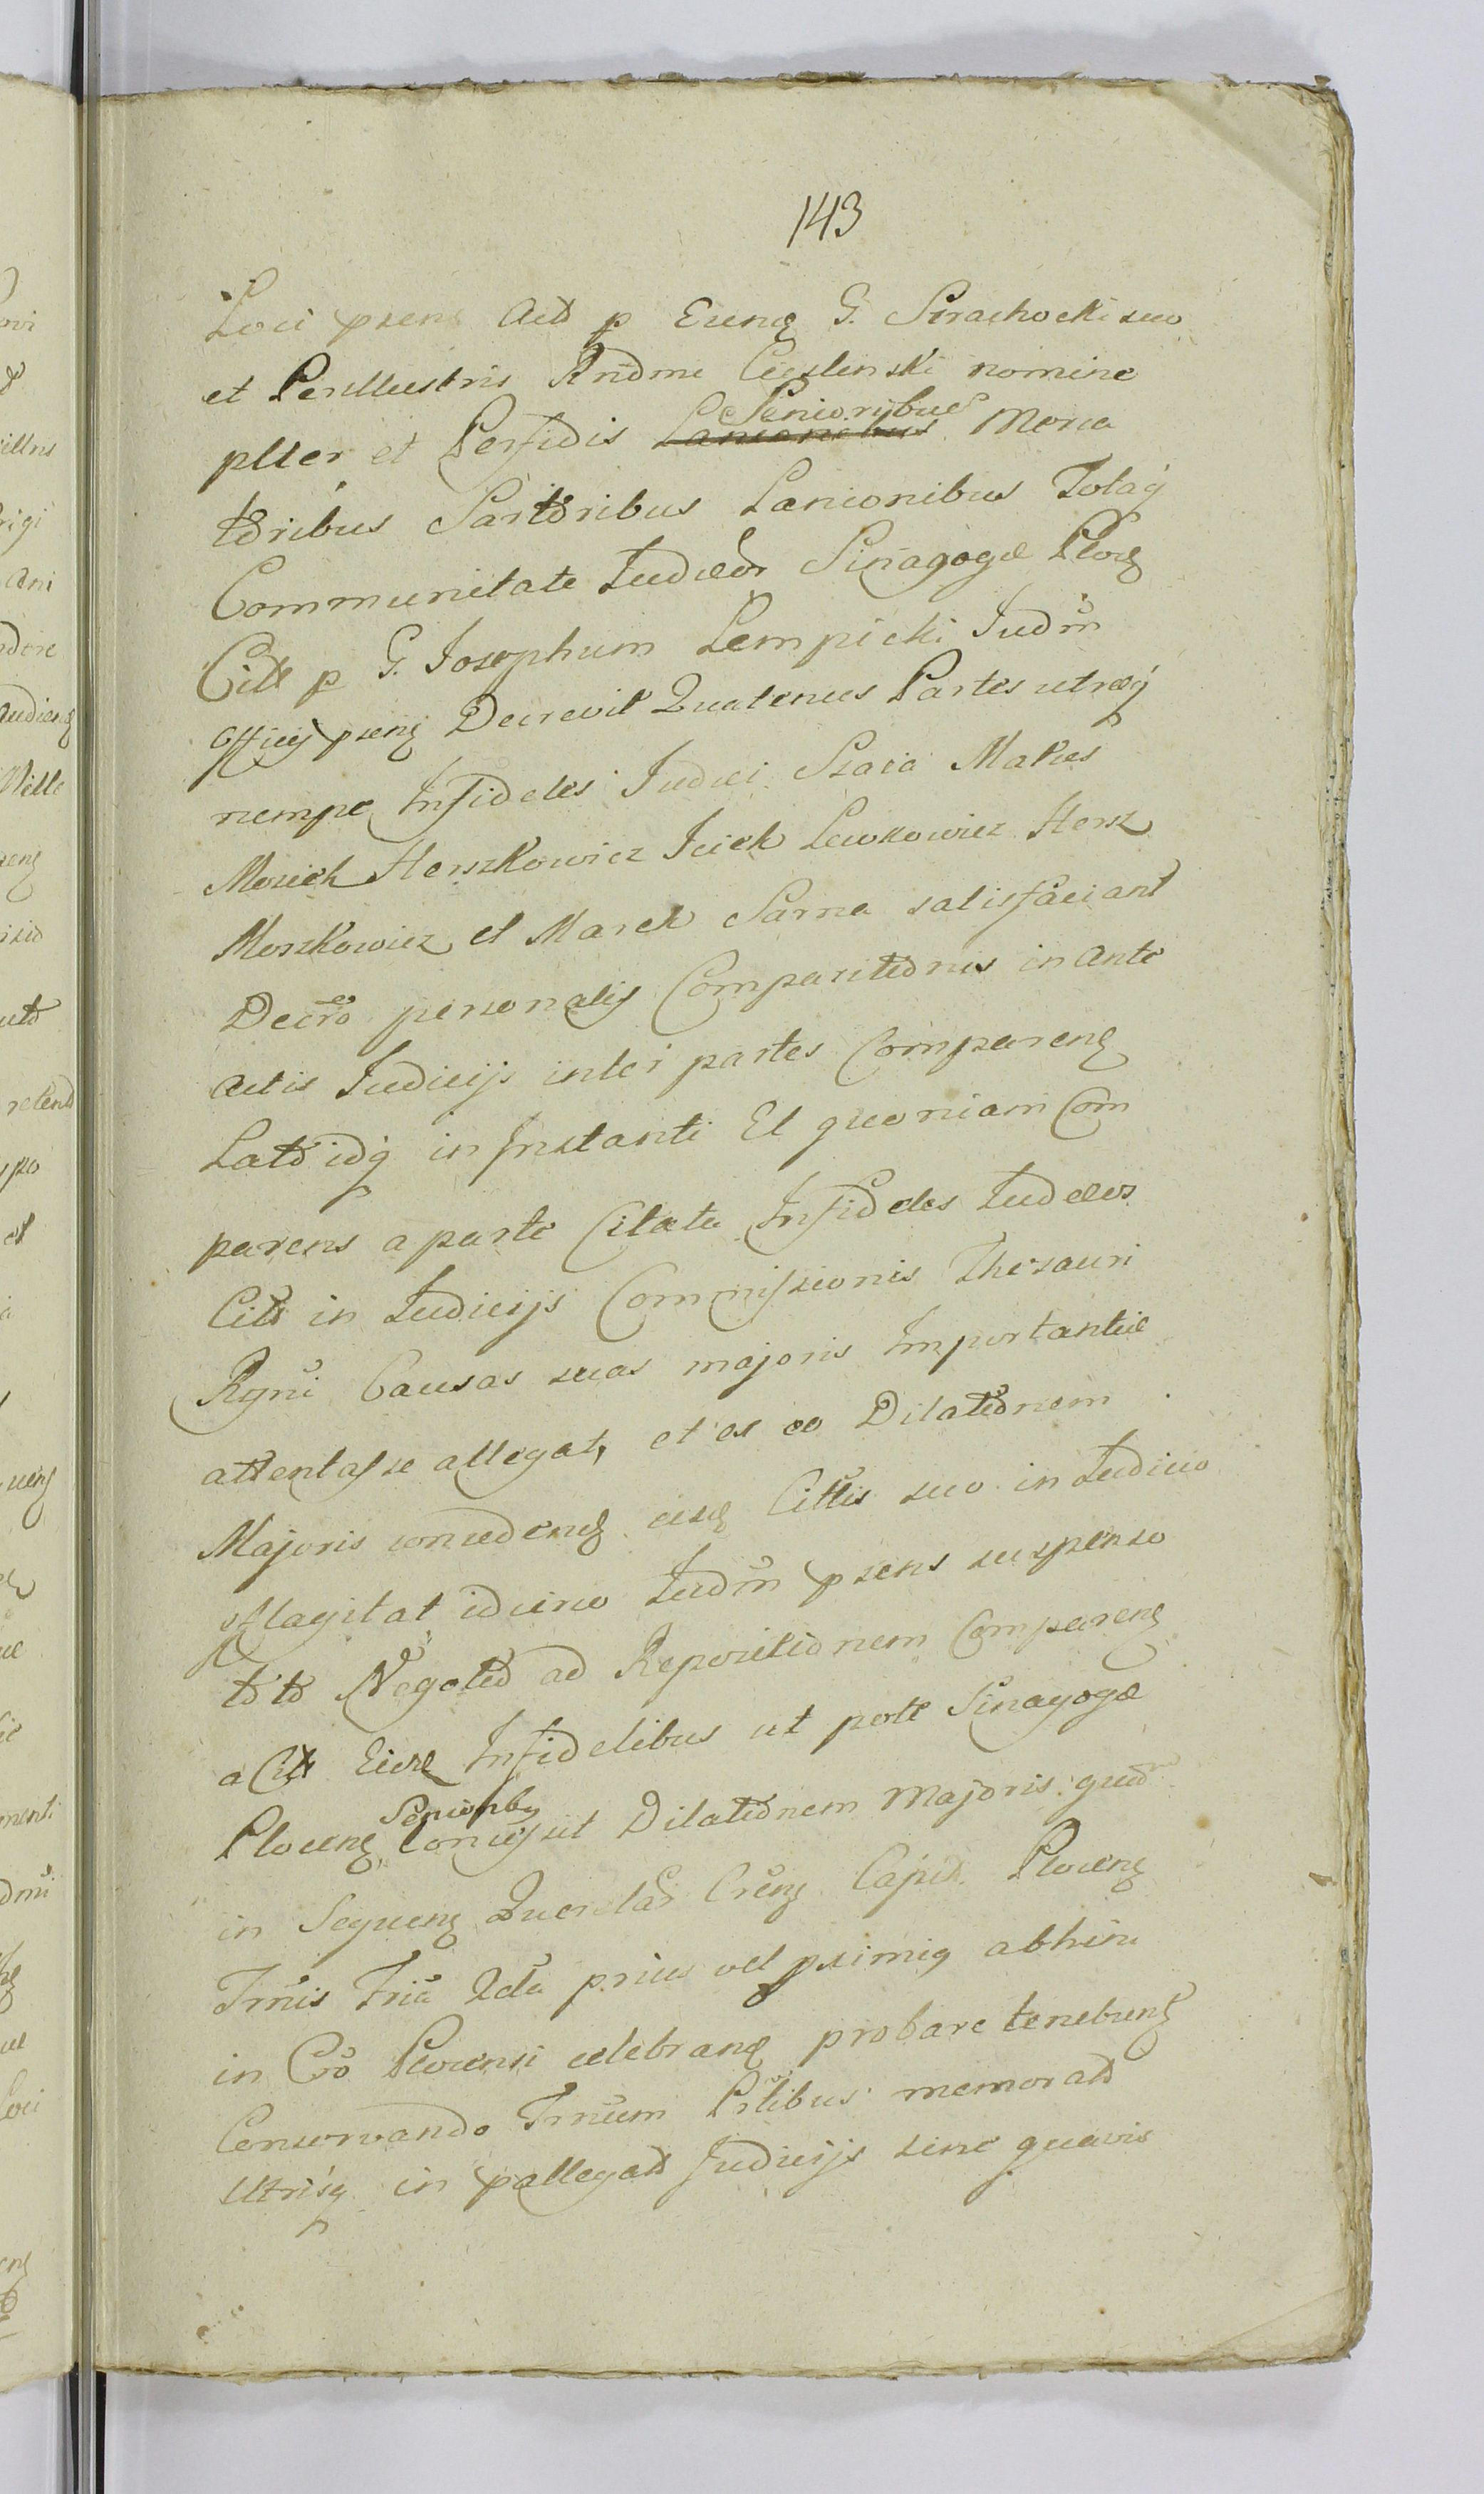 143
Loci psens Actō p Eunđ G. Strachocki suo
et Perillustris Rndmi Cieslenski nomine
plter et Perfidis Lanionibus Senioribus Merca
tōribus Sartōribus Lanionibus Totaq
Communitate Judæōr Sinagogæ Ploc
Citt p G. Josephum Lempicki Judm̄
Officij psens Decrevit Quatenus Partes utræq
nempe Infideles Judæi Szaia Makus
Mosiek Herszkowicz Icick Lewkowicz Hersz
Moszkowicz et Marek Sarna satisfaciant
Decro personalis Comparitōnis in Ante
actis Judicijs inter partes Comparen
Latō idq in Instanti Et quoniam Com
parens a parte Citata Infideles Judæos
Citō in Judicijs Commissionis Thesauri
Rgni Causas suas majoris Importantiæ
attentasse allegat, et ex eo Dilatiōnem
Majoris concedend eisd Cittis suo in Judicio
efflagitat idcirco Judm̄ psens suspenso
tōtō Negotiō ad Repositiōnem Comparen
a Citt Eisd Infidelibus ut pote Sinagogæ
Plocen Seniorib9 Concessit Dilatiōnem Majoris quam
in Sequen Querelar Cren Capit Plocen
Trnis Fria 2da prius vel pximis abhinc
in Cro Plocensi celebran probare tenebunt
Conservando Trnum Prtibus memoratō
Utrisq in pallegatō Judicijs sine quavis